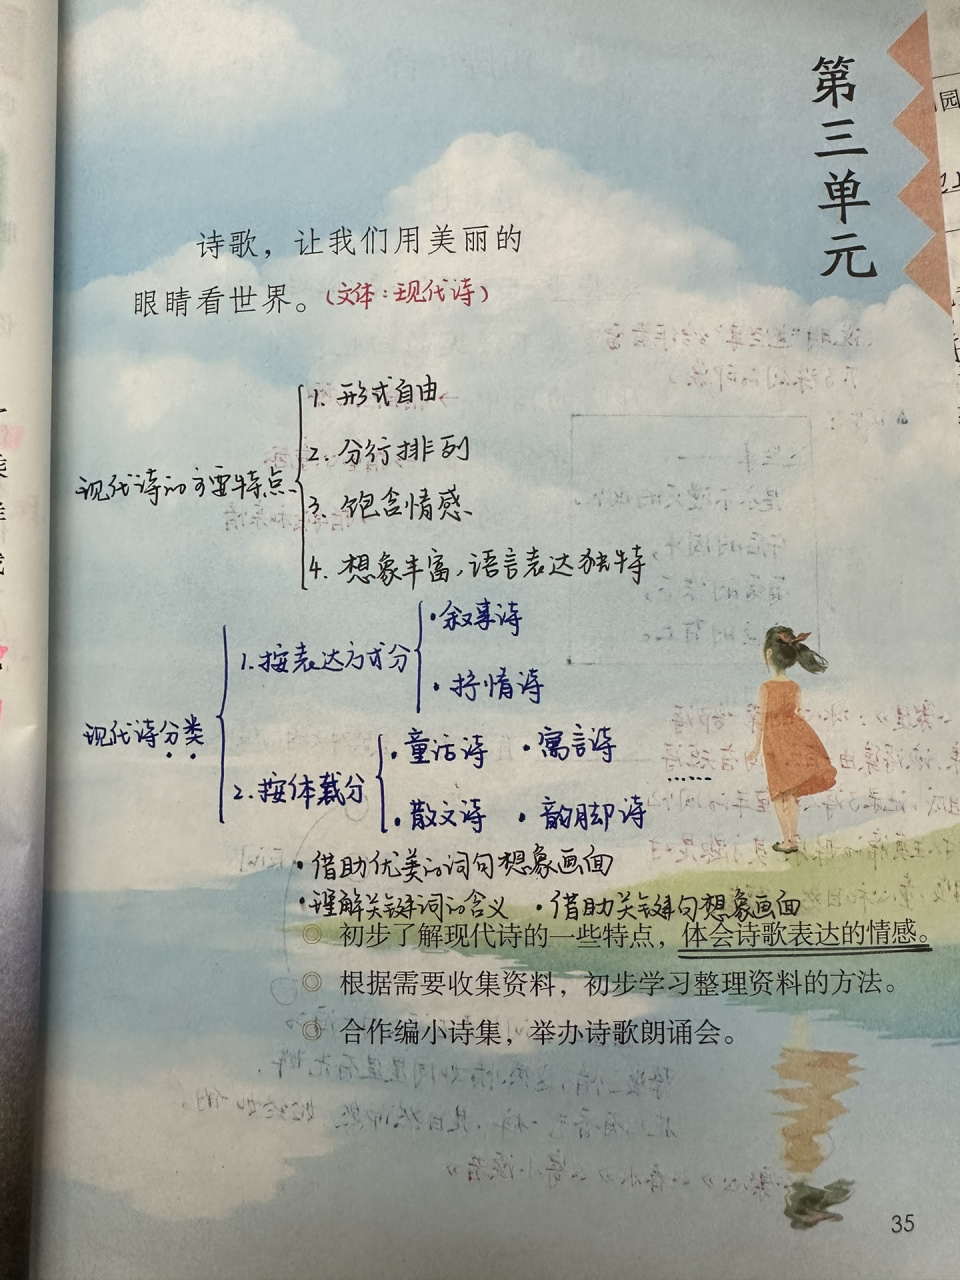 第三单元
诗歌，让我们用美丽的
眼睛看世界。(文体：现代诗)
现代诗的主要特点
1. 形式自由
2. 分行排列
3. 饱含情感
4. 想象丰富，语言表达独特
现代诗分类
1.按表达方式分
·叙事诗
·抒情诗
2.按体裁分
·童话诗 ·寓言诗
·散文诗 ·韵脚诗
·借助优美的词句想象画面
·理解关键词的含义 ·借助关键句想象画面
◎ 初步了解现代诗的一些特点，体会诗歌表达的情感。
◎ 根据需要收集资料，初步学习整理资料的方法。
◎ 合作编小诗集，举办诗歌朗诵会。
35
园